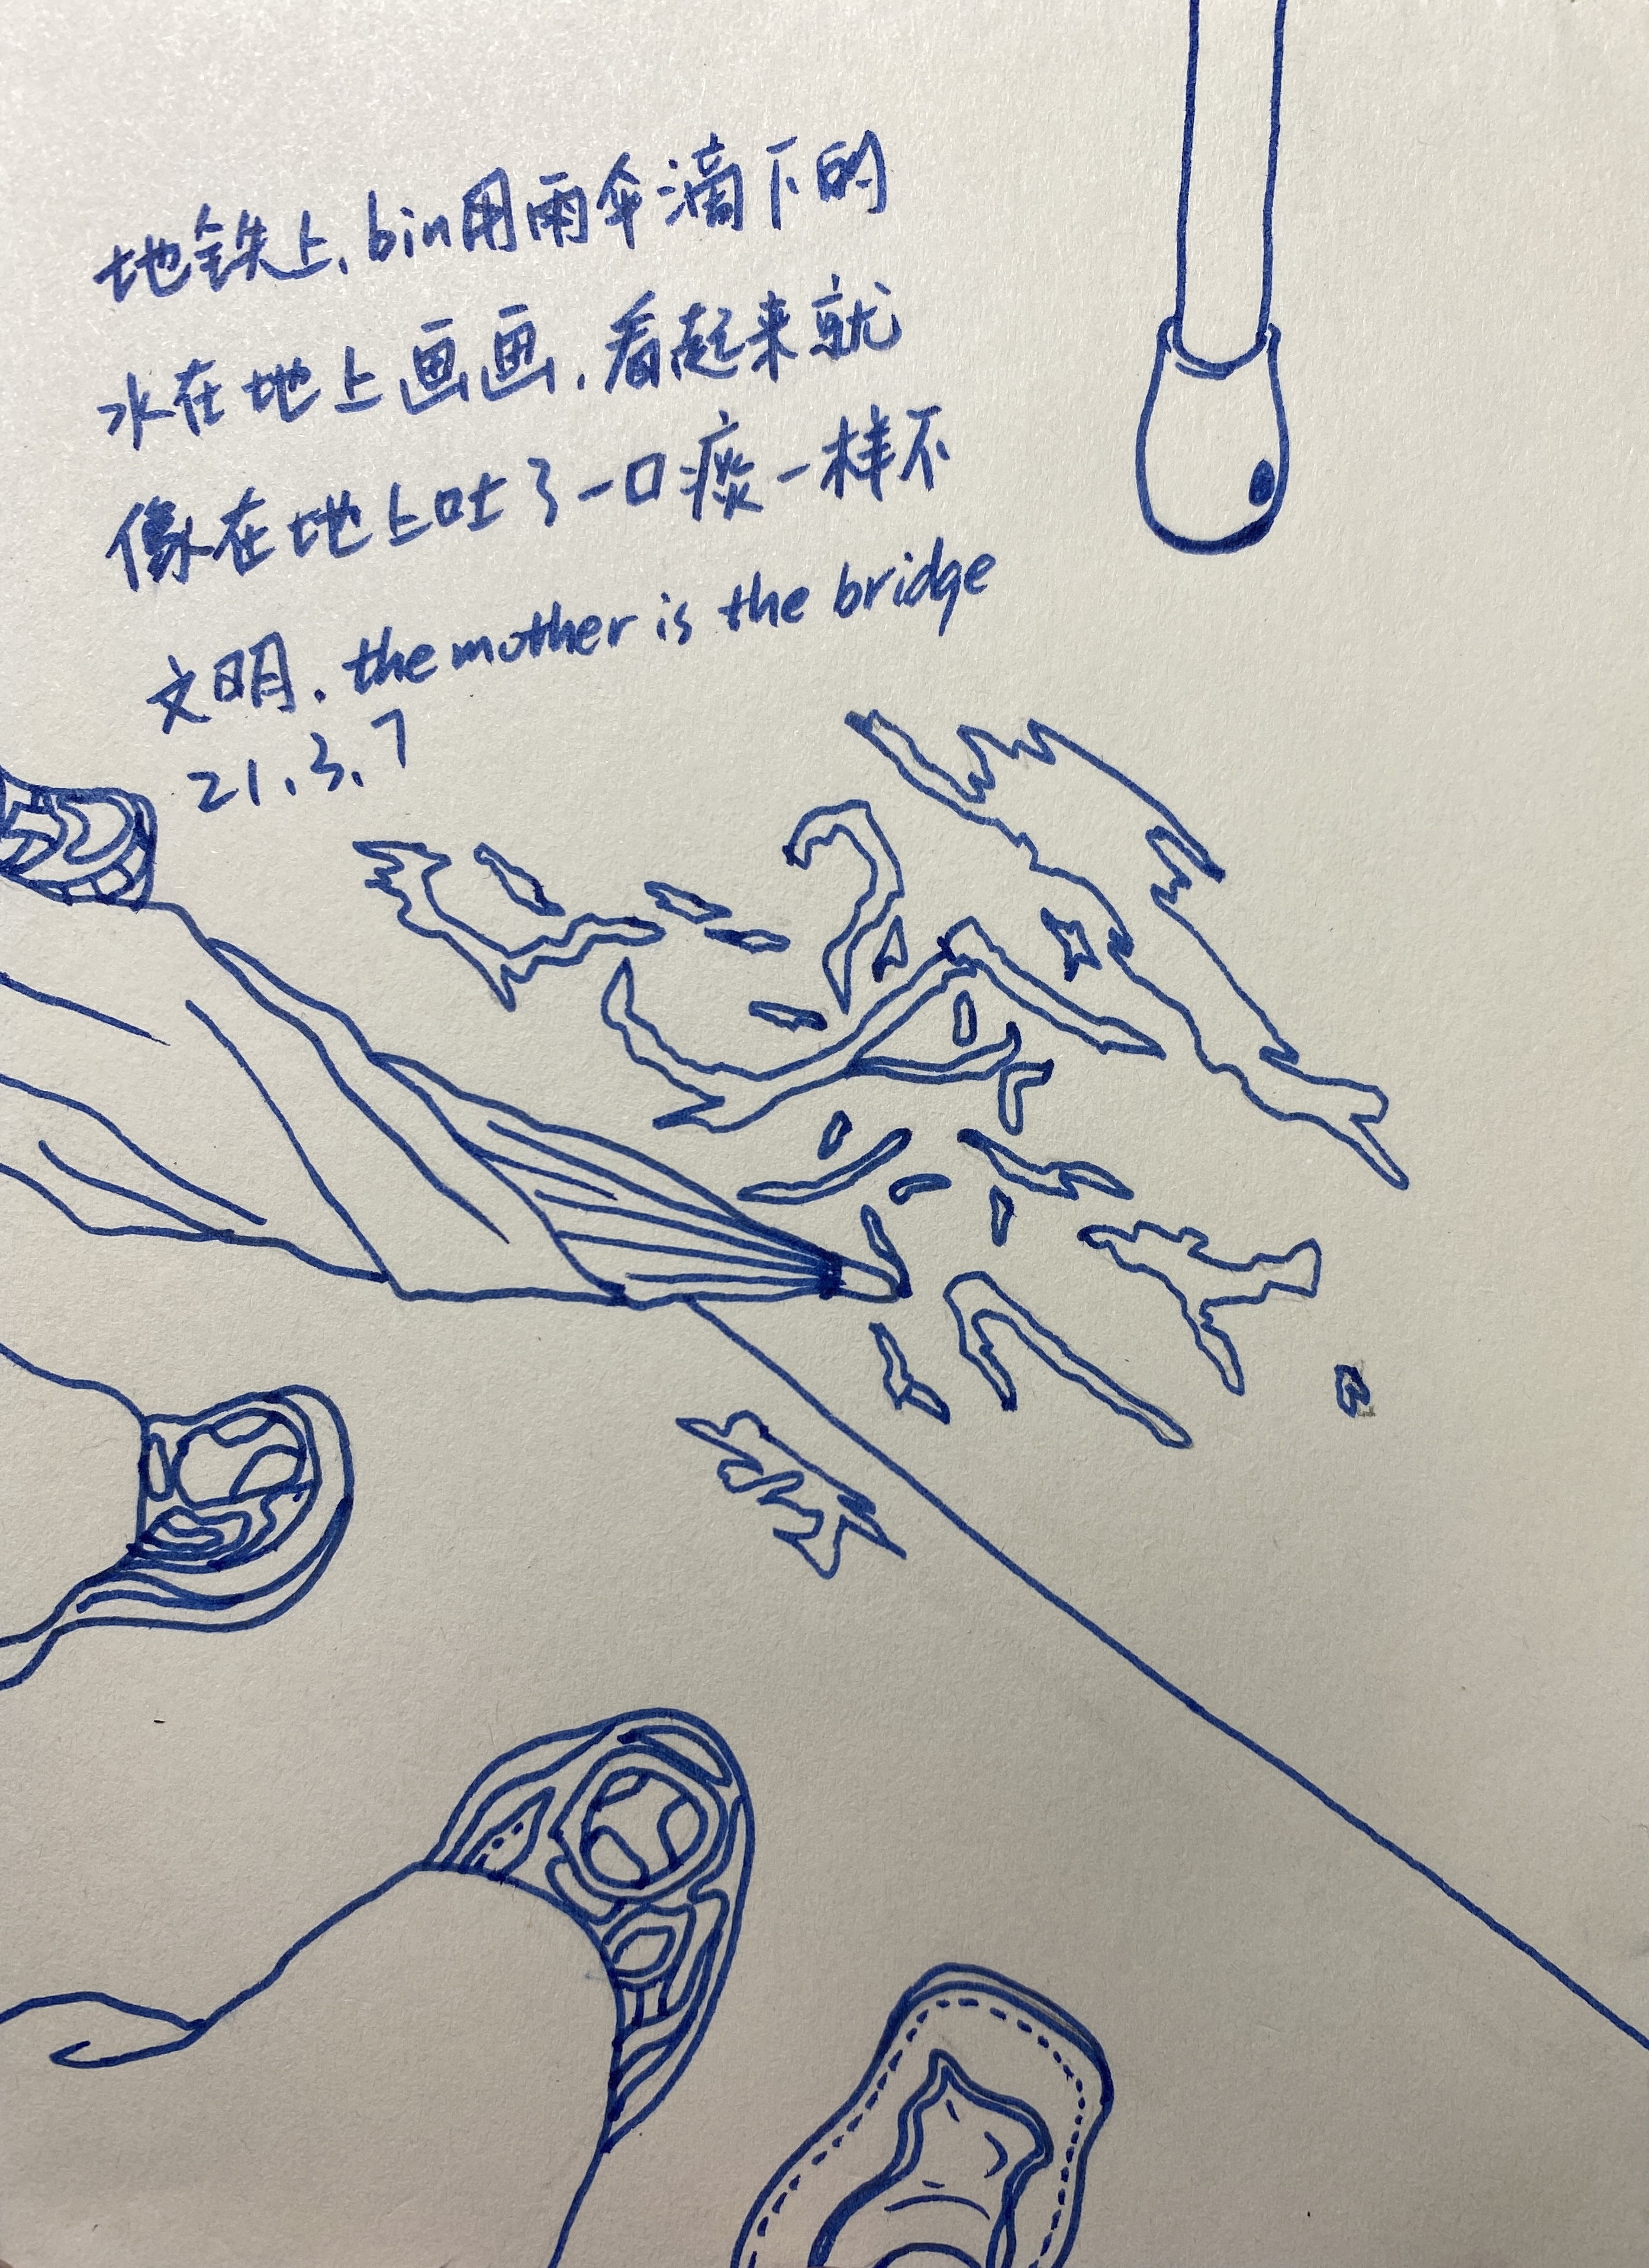 地铁上,bin用雨伞滴下的
水在地上画画,看起来就
像在地上吐了一口痰一样不
文明.the mother is the bridge
21.3.7